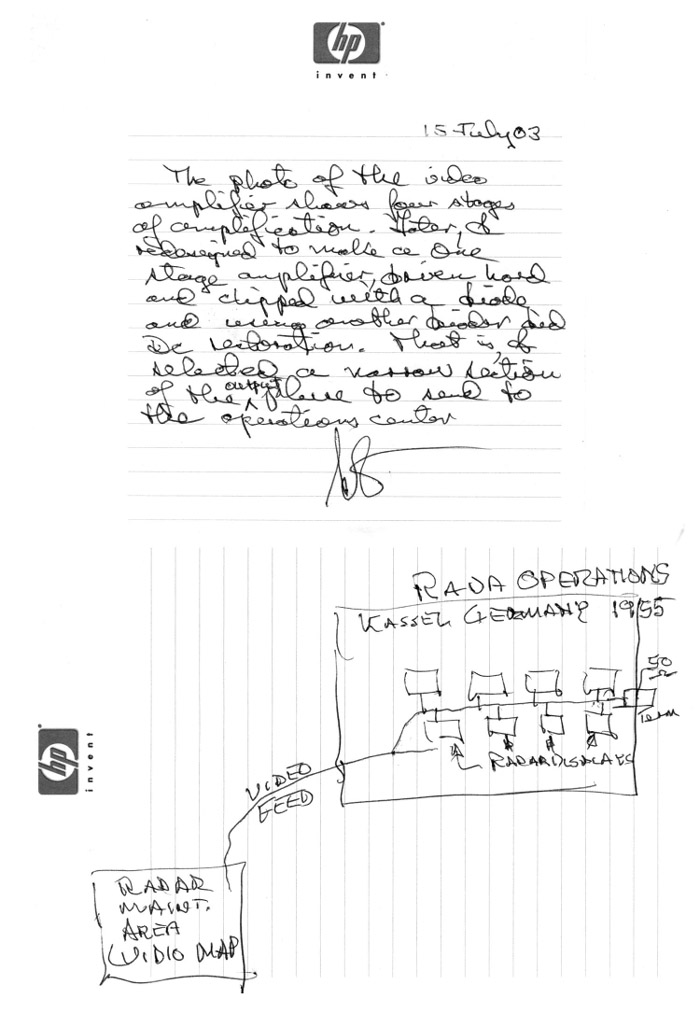 hp
invent
15 July 03
The photo of the video
amplifier shows four stages
of amplification. Later, I
redesigned to make a one
stage amplifier, driven hard
and clipped with a diode
and using another diode did
DC restoration. That is, I
selected a narrow section
of the output pulse to send to
the operations center
RADA OPERATIONS
KASSEL GERMANY 1955
50
Ω
TERM
RADAR DISPLAYS
VIDEO
FEED
hp
invent
RADAR
MAINT.
AREA
(VIDIO MAP